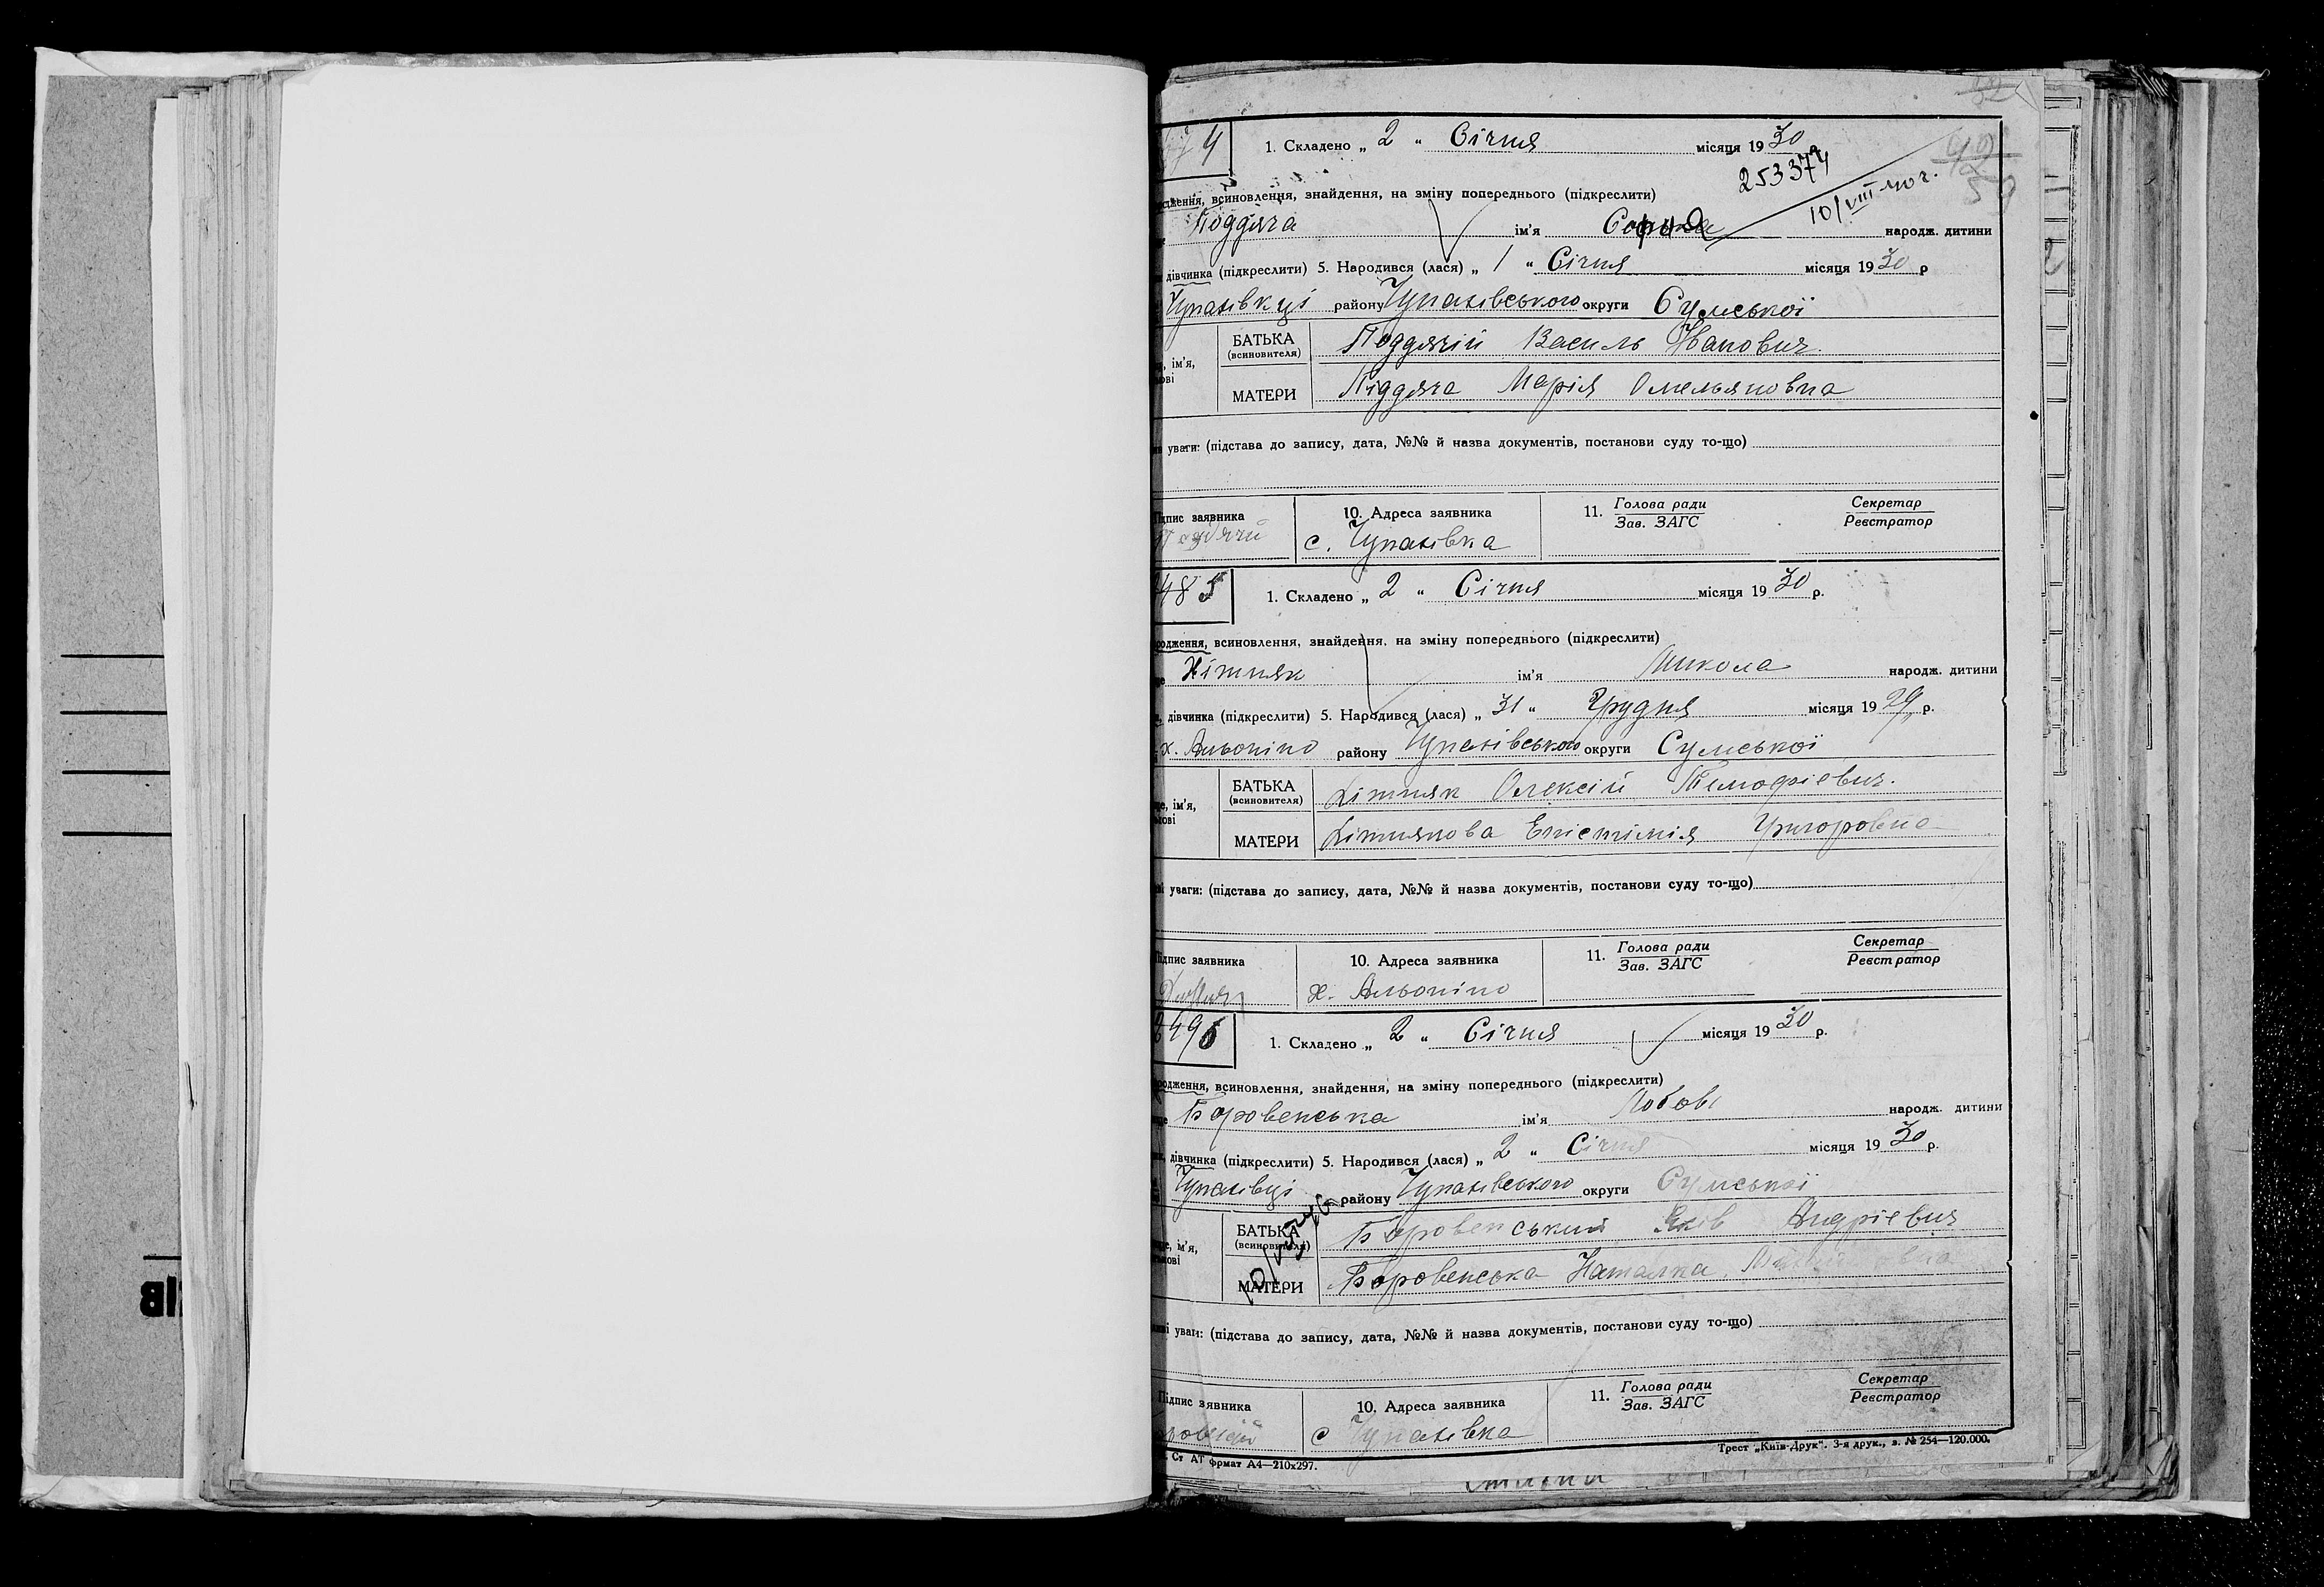 4
1. Складено „ 2 “ Січня місяця 1930
253374
10/VIII 40 г.
дження, всиновлення, знайдення, на зміну попереднього (підкреслити)
Поддяча ім'я народж. дитини
дівчинка (підкреслити) 5. Народився (лася) „ 1 “ Січня місяця 1930 р
Чупахівкці району Чупахівського округи Сумської
, ім'я,
БАТЬКА (всиновителя) Поддячій Василь Іванович
МАТЕРИ Піддяча Марія Омельяновна
уваги: (підстава до запису, дата, №№ й назва документів, постанови суду то-що)
підпис заявника 10. Адреса заявника 11. Голова ради Секретар
Зав. ЗАГС Реєстратор
Поддячий с. Чупахівка
485
1. Складено „ 2 “ Січня місяця 1930 р.
родження, всиновлення, знайдення, на зміну попереднього (підкреслити)
Хітняк ім'я Микола народж. дитини
дівчинка (підкреслити) 5. Народився (лася) „ 31 “ Грудня місяця 1929 р.
х. Альоніно району Чупахівського округи Сумської
, ім'я,
БАТЬКА (всиновителя) Хітняк Олексій Тимофієвич.
МАТЕРИ Хітнякова Епістімія Григоровна
уваги: (підстава до запису, дата, №№ й назва документів, постанови суду то-що)
підпис заявника 10. Адреса заявника 11. Голова ради Секретар
Зав. ЗАГС Реєстратор
х. Альоніно
496
1. Складено „ 2 “ Січня місяця 1930 р.
родження, всиновлення, знайдення, на зміну попереднього (підкреслити)
Боровенська ім'я Любовь народж. дитини
дівчинка (підкреслити) 5. Народився (лася) „ 2 “ Січня місяця 1930 р.
Чупахівці району Чупахівського округи Сумської
, ім'я,
БАТЬКА (всиновителя) Боровенський Яків Андрієвич
МАТЕРИ Боровенська Наталка
уваги: (підстава до запису, дата, №№ й назва документів, постанови суду то-що)
Підпис заявника 10. Адреса заявника 11. Голова ради Секретар
Зав. ЗАГС Реєстратор
с Чупахівка
Ст АТ фрмат А4—210х297.
Трест „Київ-Друк“. 3-я друк., з. № 254—120.000.